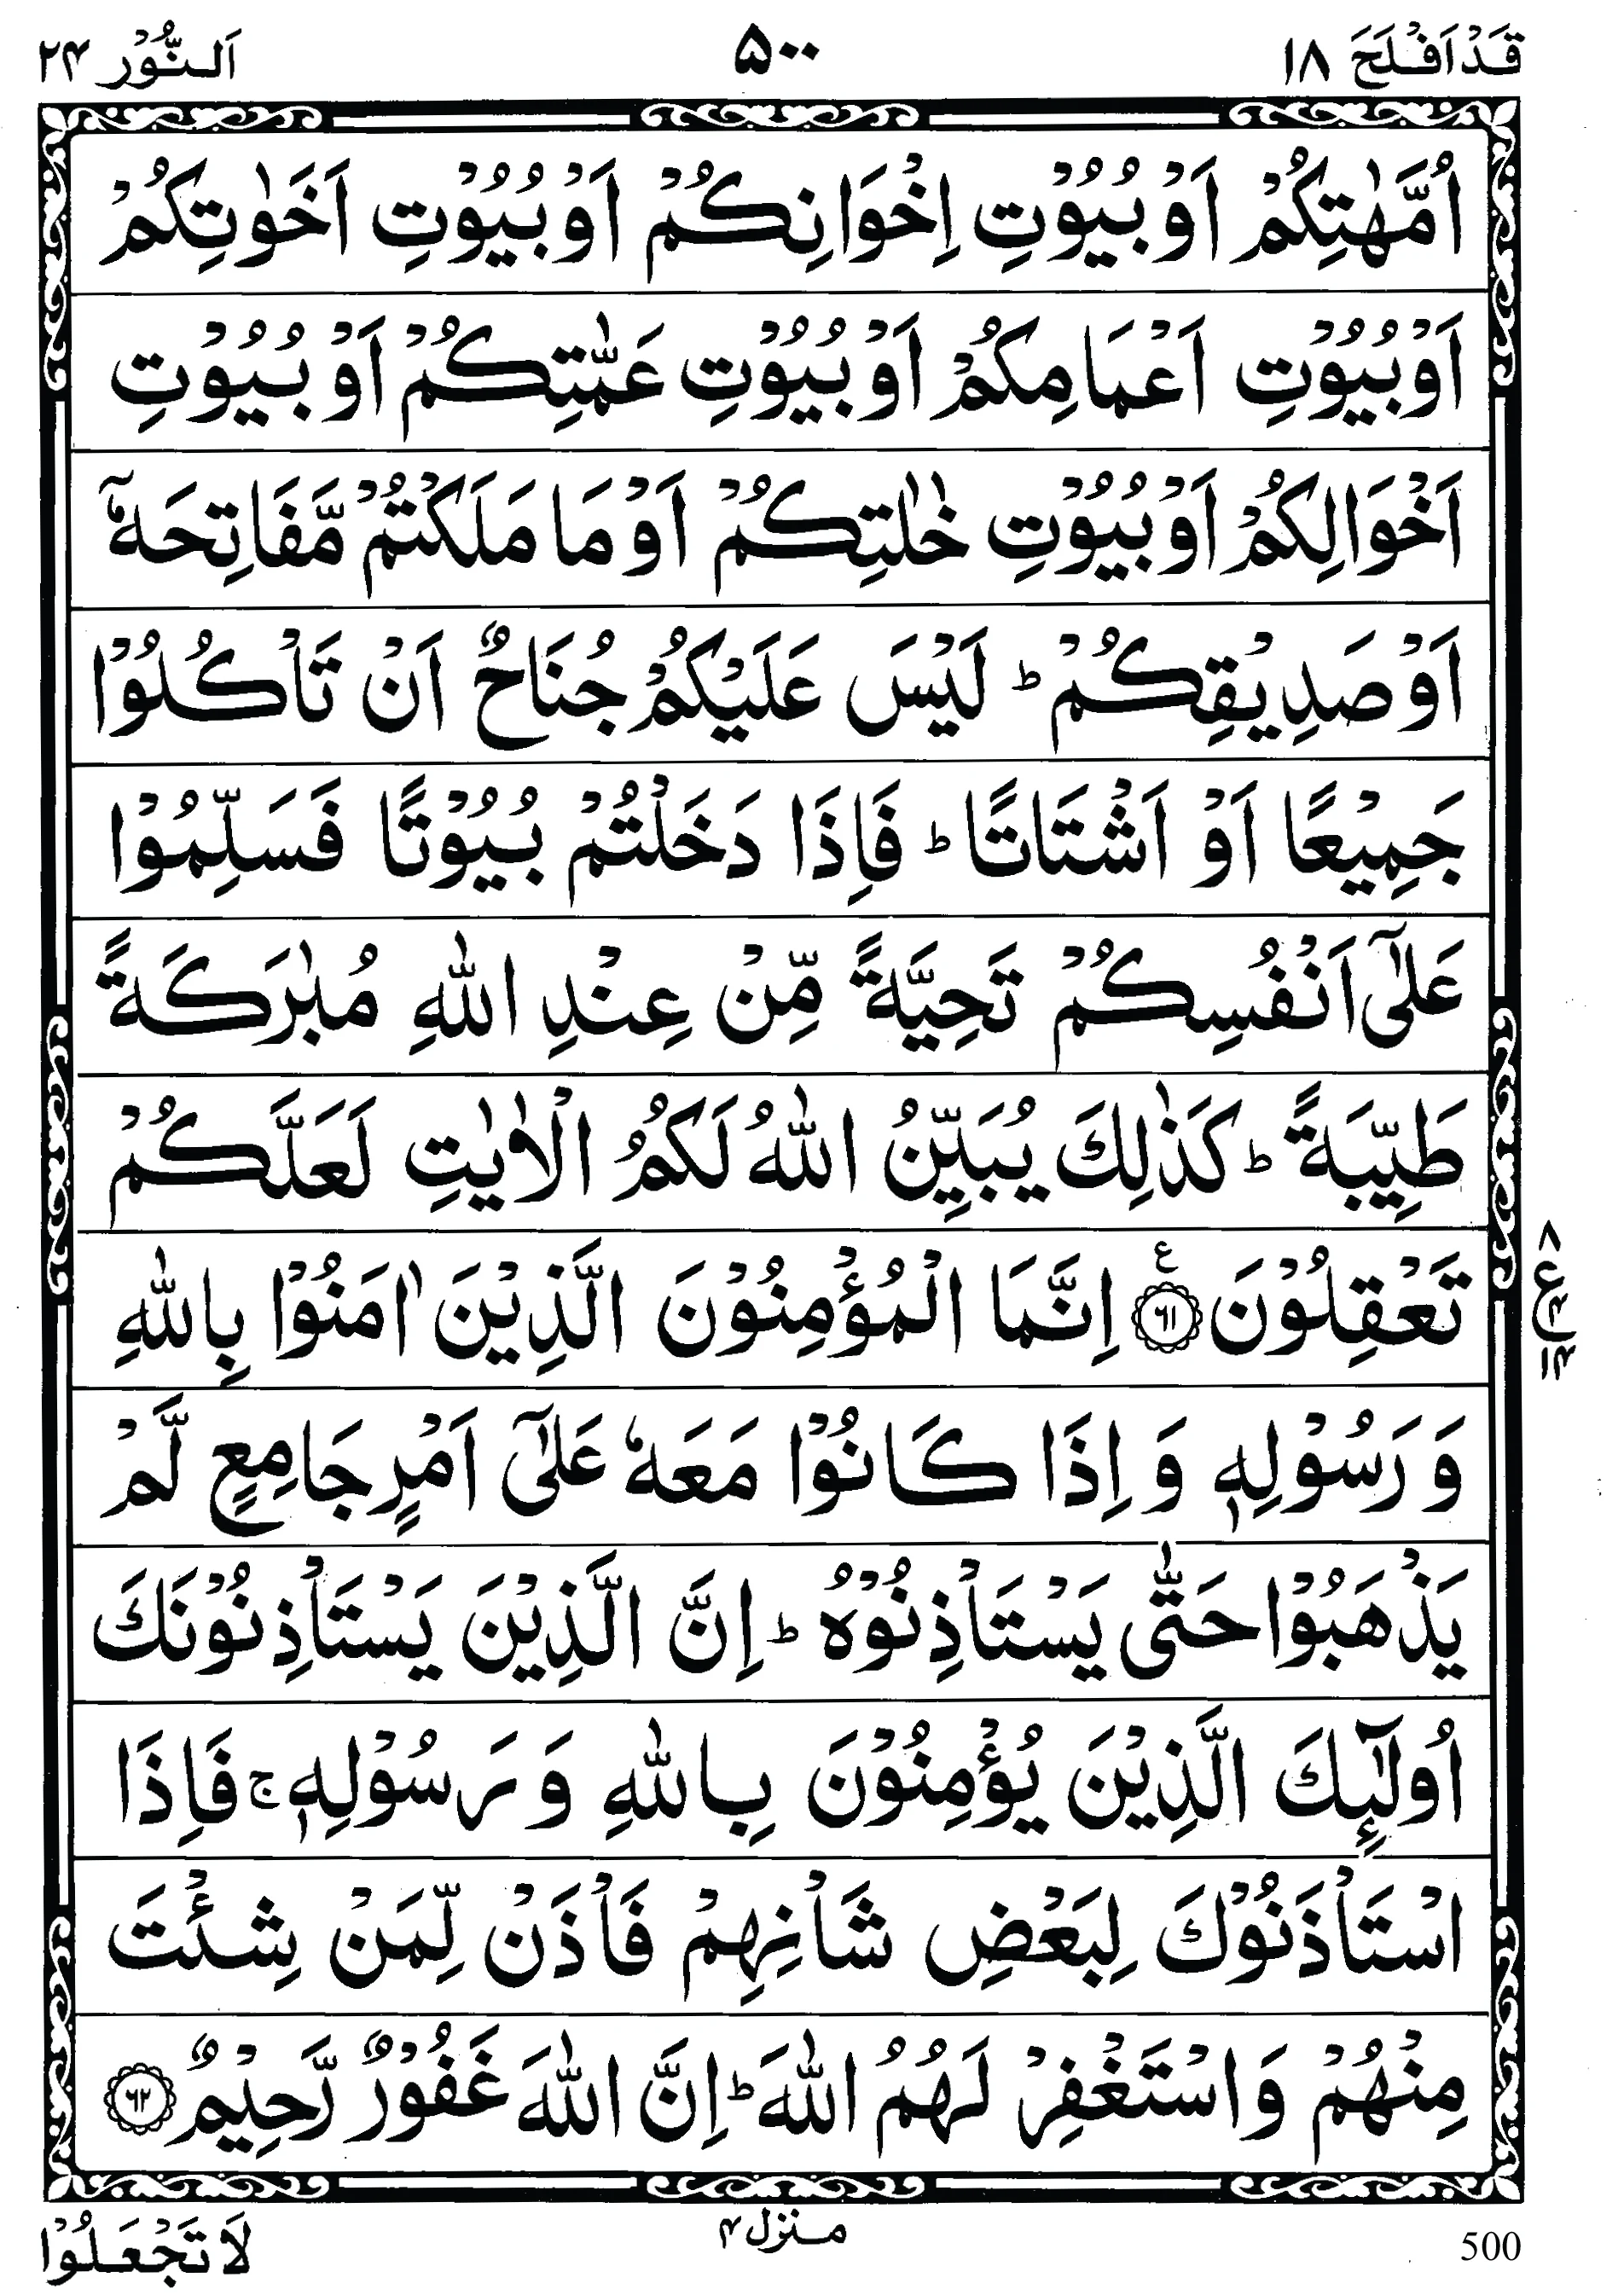 قَدْ اَفْلَحَ ۱۸ ۵۰۰ اَلنُّوْر ۲۴
اُمَّهٰتِكُمْ اَوْ بُيُوْتِ اِخْوَانِكُمْ اَوْ بُيُوْتِ اَخَوٰتِكُمْ
اَوْ بُيُوْتِ اَعْمَامِكُمْ اَوْ بُيُوْتِ عَمّٰتِكُمْ اَوْ بُيُوْتِ
اَخْوَالِكُمْ اَوْ بُيُوْتِ خٰلٰتِكُمْ اَوْ مَا مَلَكْتُمْ مَّفَاتِحَهٗۤ
اَوْ صَدِيْقِكُمْ ؕ لَيْسَ عَلَيْكُمْ جُنَاحٌ اَنْ تَاْكُلُوْا
جَمِيْعًا اَوْ اَشْتَاتًا ؕ فَاِذَا دَخَلْتُمْ بُيُوْتًا فَسَلِّمُوْا
عَلٰۤى اَنْفُسِكُمْ تَحِيَّةً مِّنْ عِنْدِ اللّٰهِ مُبٰرَكَةً
طَيِّبَةً ؕ كَذٰلِكَ يُبَيِّنُ اللّٰهُ لَكُمُ الْاٰيٰتِ لَعَلَّكُمْ
تَعْقِلُوْنَ ۶۱ ع اِنَّمَا الْمُؤْمِنُوْنَ الَّذِيْنَ اٰمَنُوْا بِاللّٰهِ
وَ رَسُوْلِهٖ وَ اِذَا كَانُوْا مَعَهٗ عَلٰۤى اَمْرٍ جَامِعٍ لَّمْ
يَذْهَبُوْا حَتّٰى يَسْتَاْذِنُوْهُ ؕ اِنَّ الَّذِيْنَ يَسْتَاْذِنُوْنَكَ
اُولٰٓئِكَ الَّذِيْنَ يُؤْمِنُوْنَ بِاللّٰهِ وَ رَسُوْلِهٖ ۚ فَاِذَا
اسْتَاْذَنُوْكَ لِبَعْضِ شَاْنِهِمْ فَاْذَنْ لِّمَنْ شِئْتَ
مِنْهُمْ وَ اسْتَغْفِرْ لَهُمُ اللّٰهَ ؕ اِنَّ اللّٰهَ غَفُوْرٌ رَّحِيْمٌ ۶۲
لَا تَجْعَلُوْا منزل ۴ 500